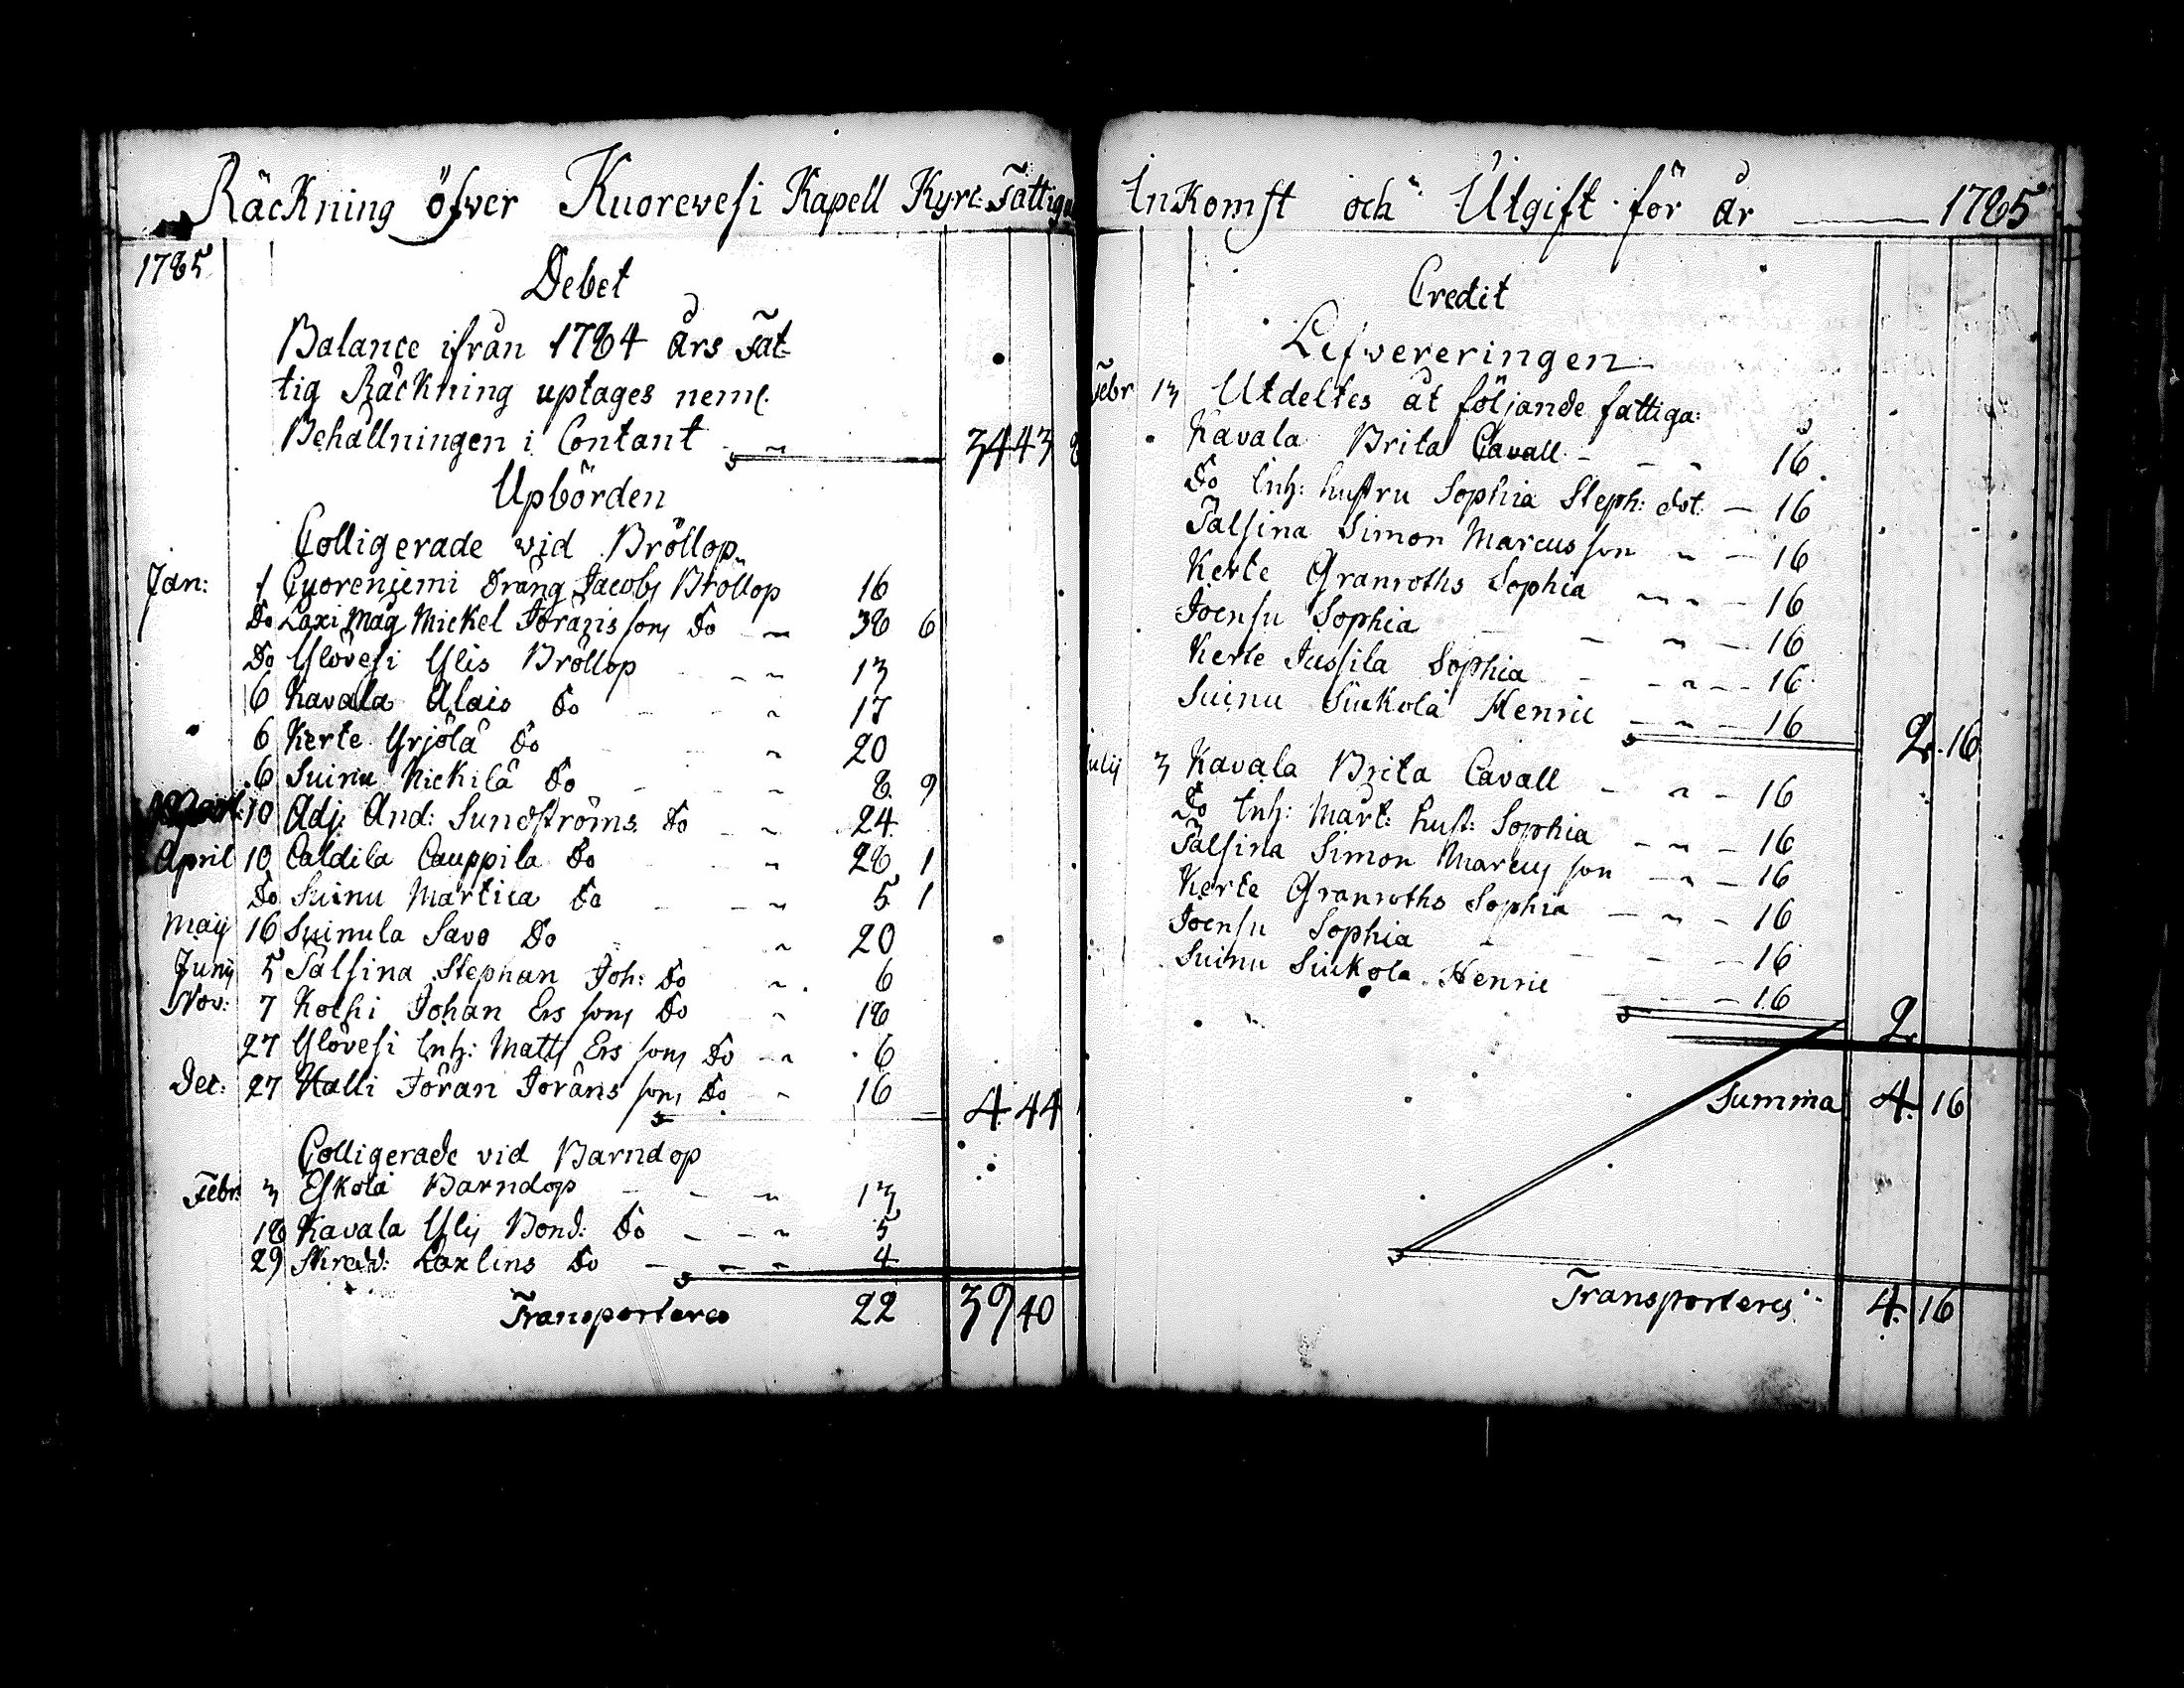 Räckning öfwer Kuorewesi Kapell Kyrc: Fattiga
1785
Debet
Balance ifrån 1784 års Fat-
tig Räckning uptages neml.
Behållningen i Contant 34 43 8
Upbörden
Colligerade vid Bröllop
Jan: 1 Cuorenjemi Dräng Jacobs Bröllop 16
Do Laxi Måg Mickel Jöransons Do 38 6
Do Ylövesi Ylis Bröllop 13
6 Kavala Alais Do 17
6 Kerte Yrjölä Do 20
6 Suinu Nickilä Do 8 9
10 Adj: And: Sundströms Do 24
April 10 Caldila Cauppila Do 28 1
Do Suinu Martila Do 5 1
Maij 16 Suinula Savo Do 20
Junij 5 Talsina Stephan Joh: Do 6
Nov: 7 Kolhi Johan Ersons Do 18
27 Ylövesi Inh: Matts Ersons Do 6
Dec: 27 Halli Jöran Jöransons Do 16
4 44
Colligerade vid Barndop
Febr: 3 Eskola Barndop 13
18 Kavala Ylij Bond: Do 5
29 Skredd: Laxlins Do 4
Transporteres 22 39 40
Inkomst och Utgift för år 1785
Credit
Lefwereringen
Febr 13 Utdeltes åt följande fattiga:
Kavala Brita Cavall 16
Do Inh: hustru Sophia Steph: dot: 16
Talsina Simon Marcusson 16
Kerte Granroths Sophia 16
Joensu Sophia 16
Kerte Jussila Sophia 16
Suinu Siukola Henric 16
2 16
Julij 3 Kavala Brita Cavall 16
Do Inh: Mårt: hust: Sophia 16
Talsina Simon Marcusson 16
Kerte Granroths Sophia 16
Joensu Sophia 16
Suinu Siukola Henric 16
2
Summa 4 16
Transporteres 4 16